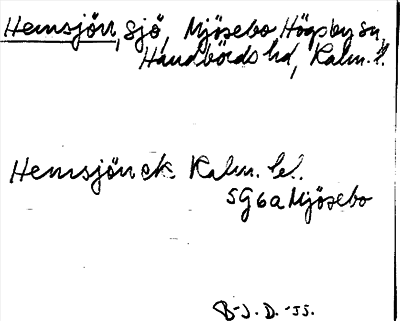 Hemsjön, sjö, Mjösebo Högsby sn,
Handbörds hd, Kalm. l.
Hemsjön ek. Kalm. bl.
5G6a Mjösebo
B-J. D. -55.